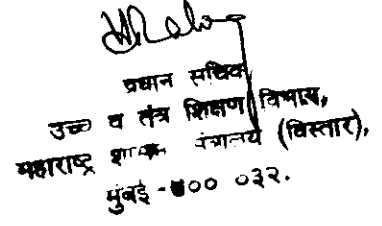 प्रधान सचिव
उच्च व तंत्र शिक्षण विभाग,
महाराष्ट्र मंत्रालय (विस्तार),
मुंबई - ४०० ०३२.